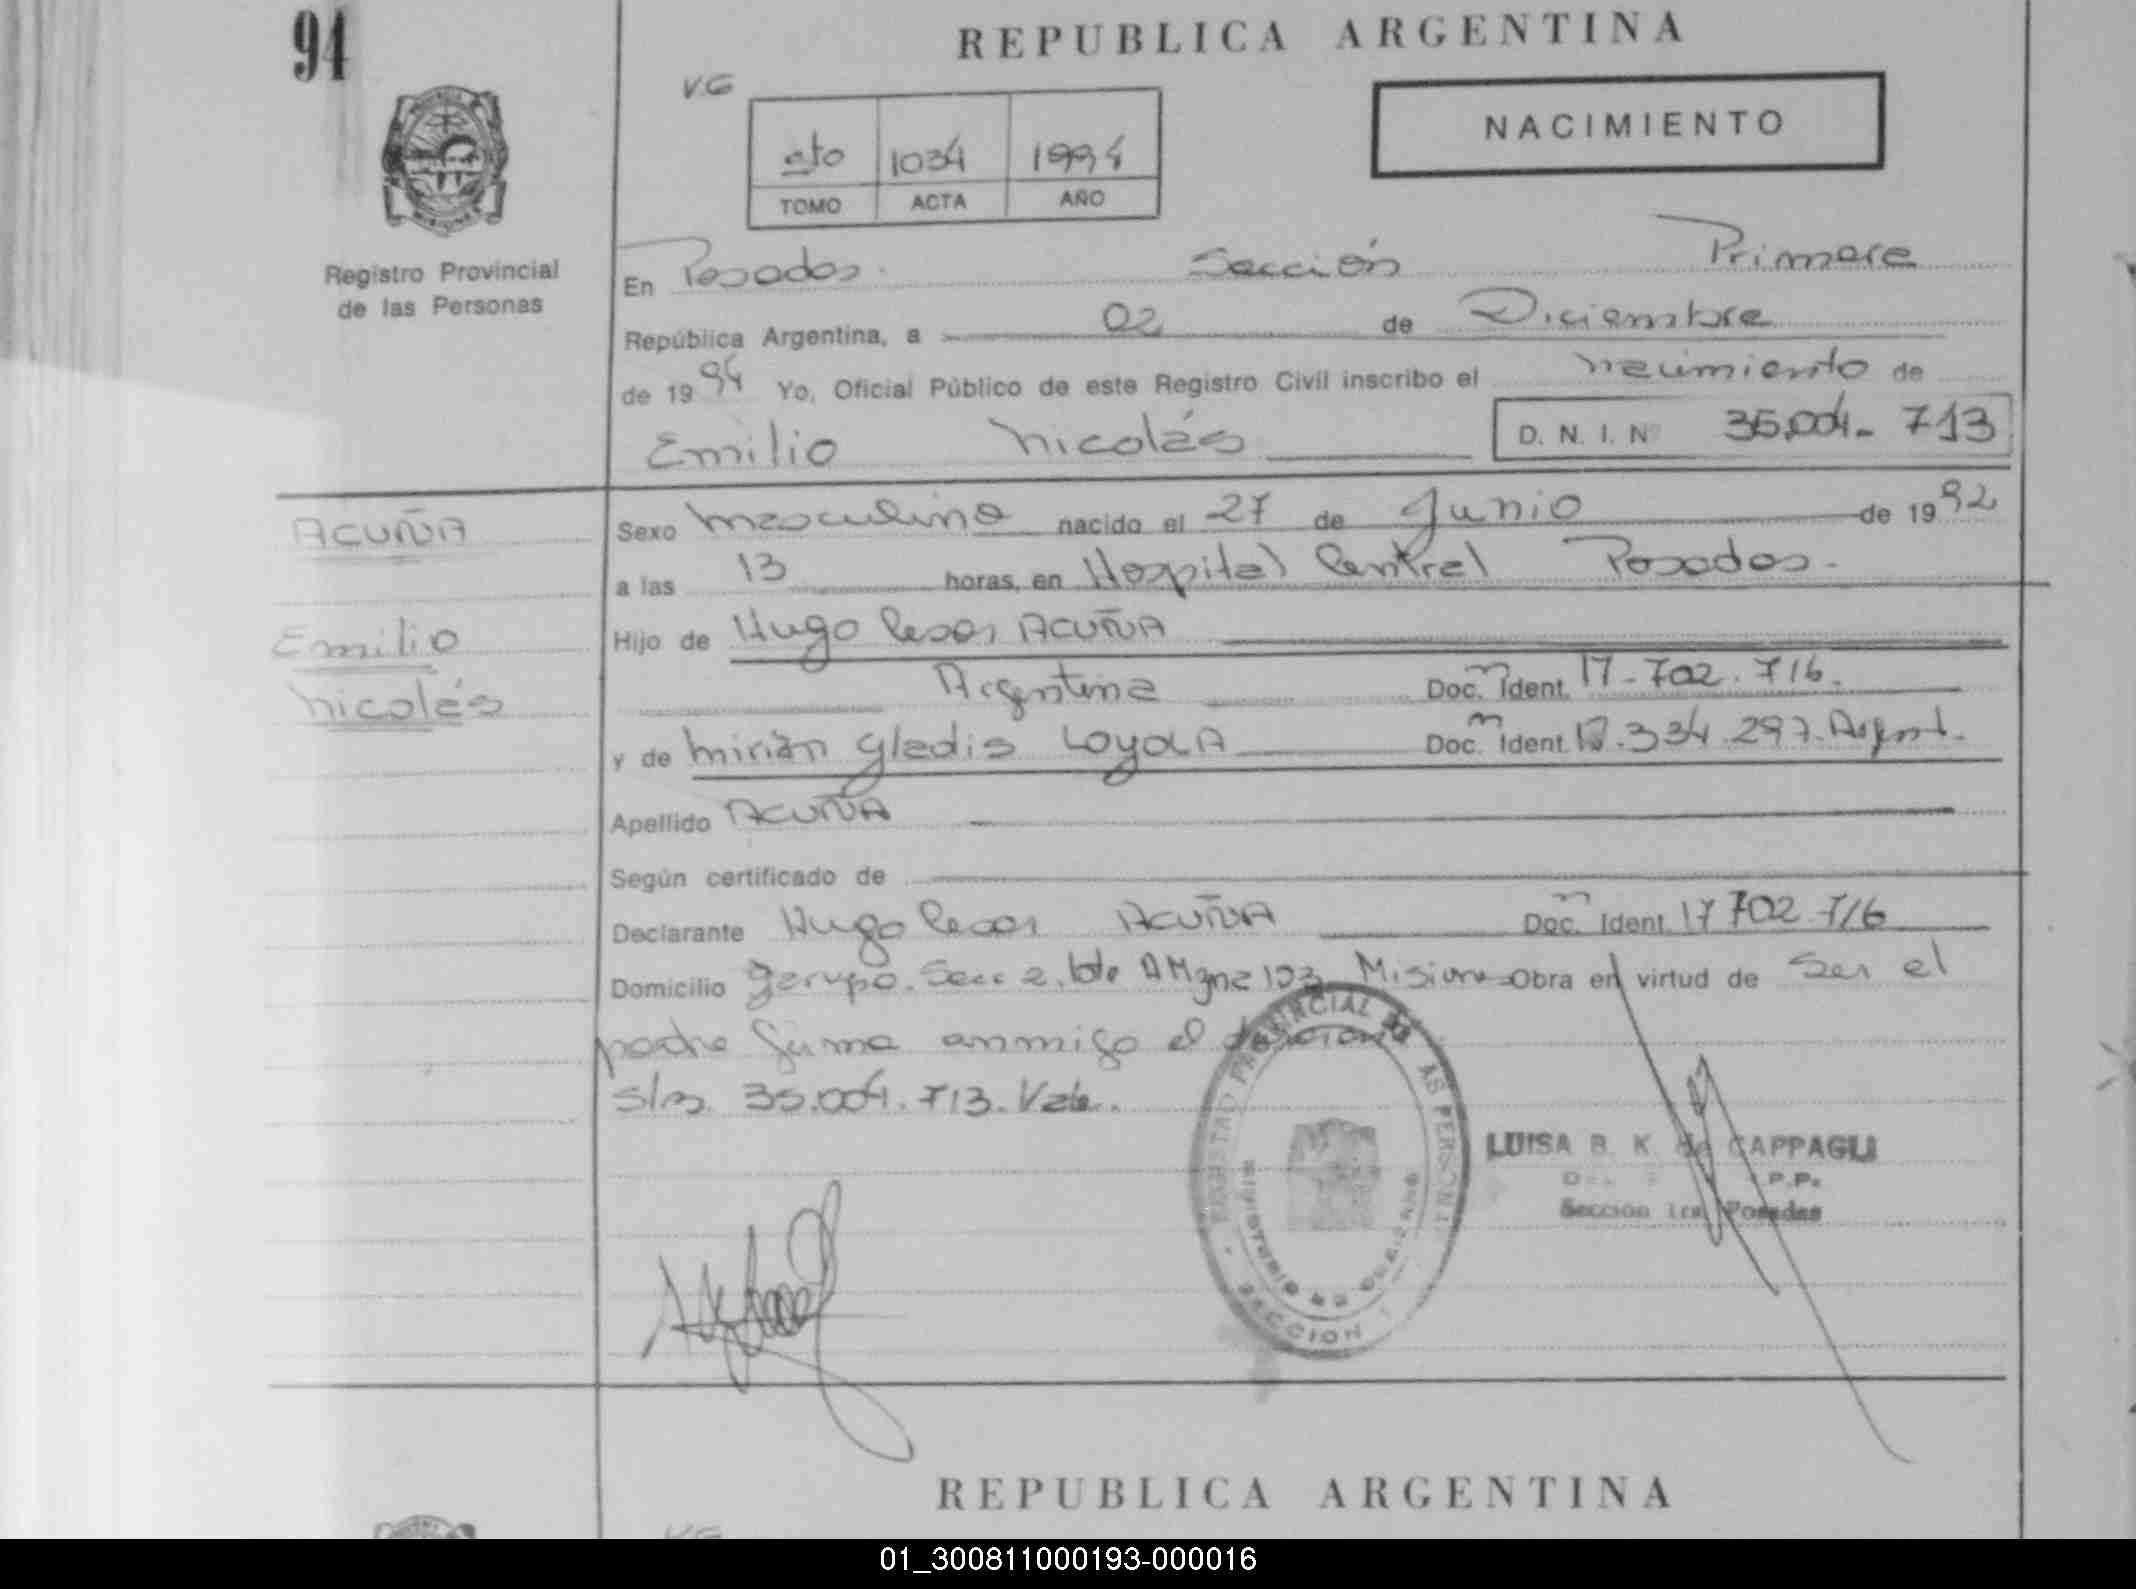 94
REPUBLICA ARGENTINA
V.G
NACIMIENTO
6to 1034 1994
TOMO ACTA AÑO
Registro Provincial
de las Personas
En Posadas. Sección Primera
República Argentina, a 02 de Diciembre
de 1994 Yo, Oficial Público de este Registro Civil inscribo el nacimiento de
Emilio Nicolás D. N. I. Nº 35.004.713
ACUÑA
Emilio
Nicolás
Sexo masculino nacido el 27 de Junio de 1992
a las 13 horas, en Hospital Central Posadas.
Hijo de Hugo Cesar ACUÑA
Argentina Doc. Ident. 17.702.716.
y de Mirian Gladis LOYOLA Doc. Ident. .334.297. Argent.
Apellido ACUÑA
Según certificado de
Declarante Hugo Cesar ACUÑA Doc. Ident. 17 702.716
Domicilio Garupa. Secc 2. lote A Mzna 103 Misiones Obra en virtud de Ser el
padre firma conmigo el
s/r. 35.004.713. Vale.
REGISTRO PROVINCIAL DE LAS PERSONAS
MINISTERIO DE GOBIERNO
SECCION 1
LUISA B. K. de CAPPAGLI
P.P.
Seccion 1ra Posadas
REPUBLICA ARGENTINA
VG
01_300811000193-000016